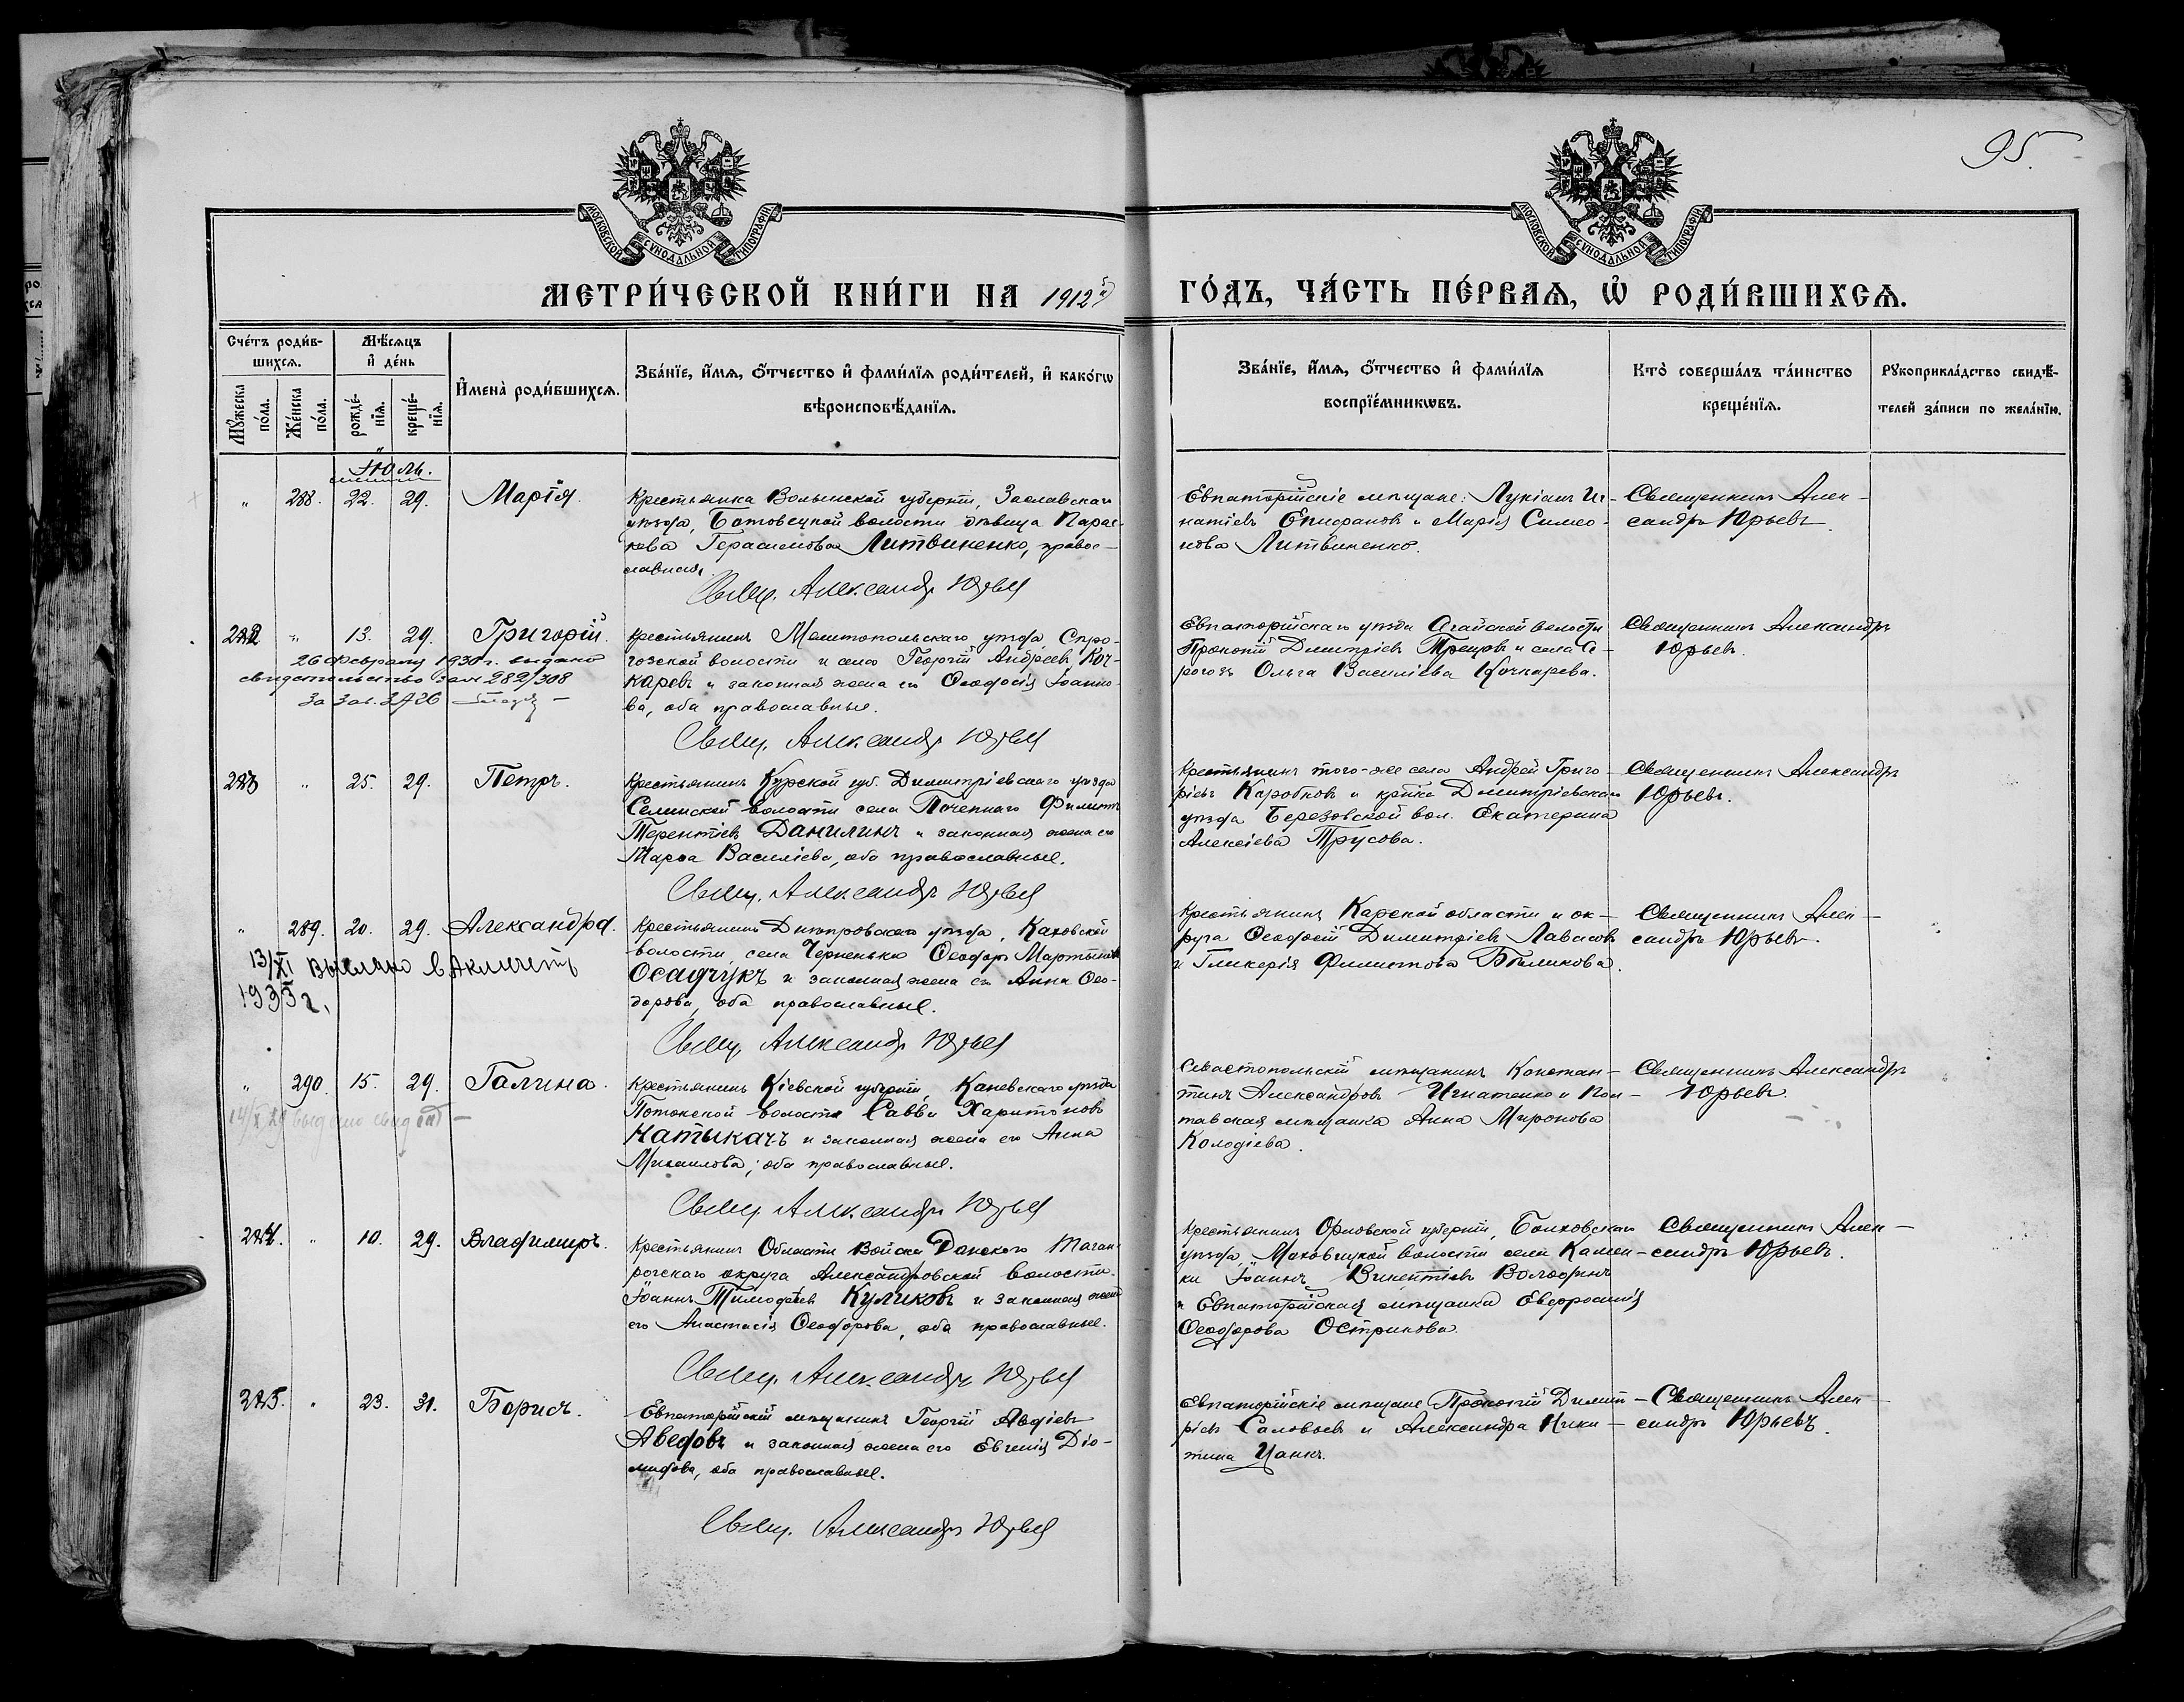 95.
МОСКОВСКОЙ СѴНОДАЛЬНОЙ ТИПОГРАФІИ
МОСКОВСКОЙ СѴНОДАЛЬНОЙ ТИПОГРАФІИ
МЕТРИ́ЧЕСКОЙ КНИ́ГИ НА 1912й ГО́ДЪ, ЧА́СТЬ ПЕ́РВАѦ, Ѡ҆ РОДИ́ВШИХСѦ.
Сче́тъ роди́в-
шихсѧ.
Мꙋ́жеска по́ла.
Же́нска по́ла.
Мѣ́сѧцъ
и҆ де́нь
рожде́-
нїѧ.
креще́-
нїѧ.
И҆мена̀ роди́вшихсѧ.
Зва́нїе, и҆́мѧ, ѻ҆́тчество и҆ фами́лїѧ роди́телей, и҆ како́гѡ
вѣроисповѣ́данїѧ.
Зва́нїе, и҆́мѧ, ѻ҆́тчество и҆ фами́лїѧ
воспрїе́мникѡвъ.
Кто̀ соверша́лъ та́инство
креще́нїѧ.
Рꙋкоприкла́дство свидѣ́-
телей за́писи по жела́нїю.
Іюль.
" 288. 22. 29. Марія.
Крестьянка Волынской губерніи, Заславскаго
уѣзда, волости дѣвица Парас-
кева Герасимова Литвиненко, право-
славная.
Свящ. Александръ Юрьевъ
Евпаторійскіе мѣщане: Лукіанъ Иг-
натіевъ Епифановъ и Марія Симео-
нова Литвиненко.
Священникъ Алек-
сандръ Юрьевъ.
" 13. 29. Григорій.
26 Февраля 1930 г. выдано
свидетельство за № 289/308
За зав.
Крестьянинъ Мелитопольскаго уѣзда Сѣро-
гозской волости и села Георгій Андреевъ Коч-
каревъ и законная жена его Ѳеодосія Іоанно-
ва, оба православные.
Свящ. Александръ Юрьевъ
Евпаторійскаго уѣзда Агайской волости
Прокопій Димитріевъ и села Сѣ-
рогозъ Ольга Василіева Кочкарева.
Священникъ Александръ
Юрьевъ.
" 25. 29. Петръ.
Крестьянинъ Курской губ. Димитріевскаго уѣзда
волости села Филиппъ
Терентіевъ Данилинъ и законная жена его
Марѳа Василіева, оба православные.
Свящ. Александръ Юрьевъ
Крестьянинъ того-же села Андрей Григо-
ріевъ Коробковъ и кр-нка Димитріевскаго
уѣзда Березовской вол. Екатерина
Алексіева Трусова.
Священникъ Александръ
Юрьевъ.
" 289. 20. 29. Александра.
13/XI Выслано
1935 г.
Крестьянинъ Днѣпровскаго уѣзда, Каховской
волости, села Черненько Ѳеодоръ Мартыновъ
Осадчукъ и законная жена его Анна Ѳео-
дорова, оба православные.
Свящ. Александръ Юрьевъ
Крестьянинъ Карской области и ок-
руга Ѳеодосій Димитріевъ
и Гликерія Филиппова Бѣликова.
Священникъ Алек-
сандръ Юрьевъ.
" 290. 15. 29. Галина.
Крестьянинъ Кіевской губерніи, Каневскаго уѣзда
Потокской волости Савва Харитоновъ
Натыкачъ и законная жена его Анна
Михаилова, оба православные.
Свящ. Александръ Юрьевъ
Севастопольскій мѣщанинъ Констан-
тинъ Александровъ Игнатенко и Пол-
тавская мѣщанка Анна Миронова
Колодіева.
Священникъ Александръ
Юрьевъ.
" 10. 29. Владимиръ.
Крестьянинъ Области Войска Донского Таган-
рогскаго округа Александровской волости
Іоаннъ Тимофеевъ Куликовъ и законная жена
его Анастасія Ѳеодорова, оба православные.
Свящ. Александръ Юрьевъ
Крестьянинъ Орловской губерніи, Болховскаго
уѣзда, волости села Камен-
ки Іоаннъ Викентіевъ
и Евпаторійская мѣщанка Евфросинія
Ѳеодорова Острикова.
Священникъ Алек-
сандръ Юрьевъ.
" 23. 31. Борисъ.
Евпаторійскій мѣщанинъ Георгій Авдіевъ
Аведовъ и законная жена его Евгенія Діо-
мидова, оба православные.
Свящ. Александръ Юрьевъ
Евпаторійскіе мѣщане Прокопій Димит-
ріевъ Саловьевъ и Александра Ники-
тина Цанкъ.
Священникъ Алек-
сандръ Юрьевъ.